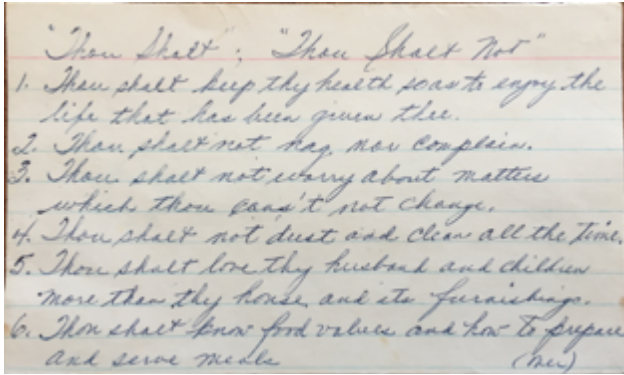 "Thou Shalt"; "Thou Shalt Not"
1. Thou shalt keep thy health so as to enjoy the
life that has been given thee.
2. Thou shalt not nag nor complain.
3. Thou shalt not worry about matters
which thou cans't not change.
4. Thou shalt not dust and clean all the time.
5. Thou shalt love thy husband and children
more than thy house and its furnishings.
6. Thou shalt know food values and how to prepare
and serve meals (over)